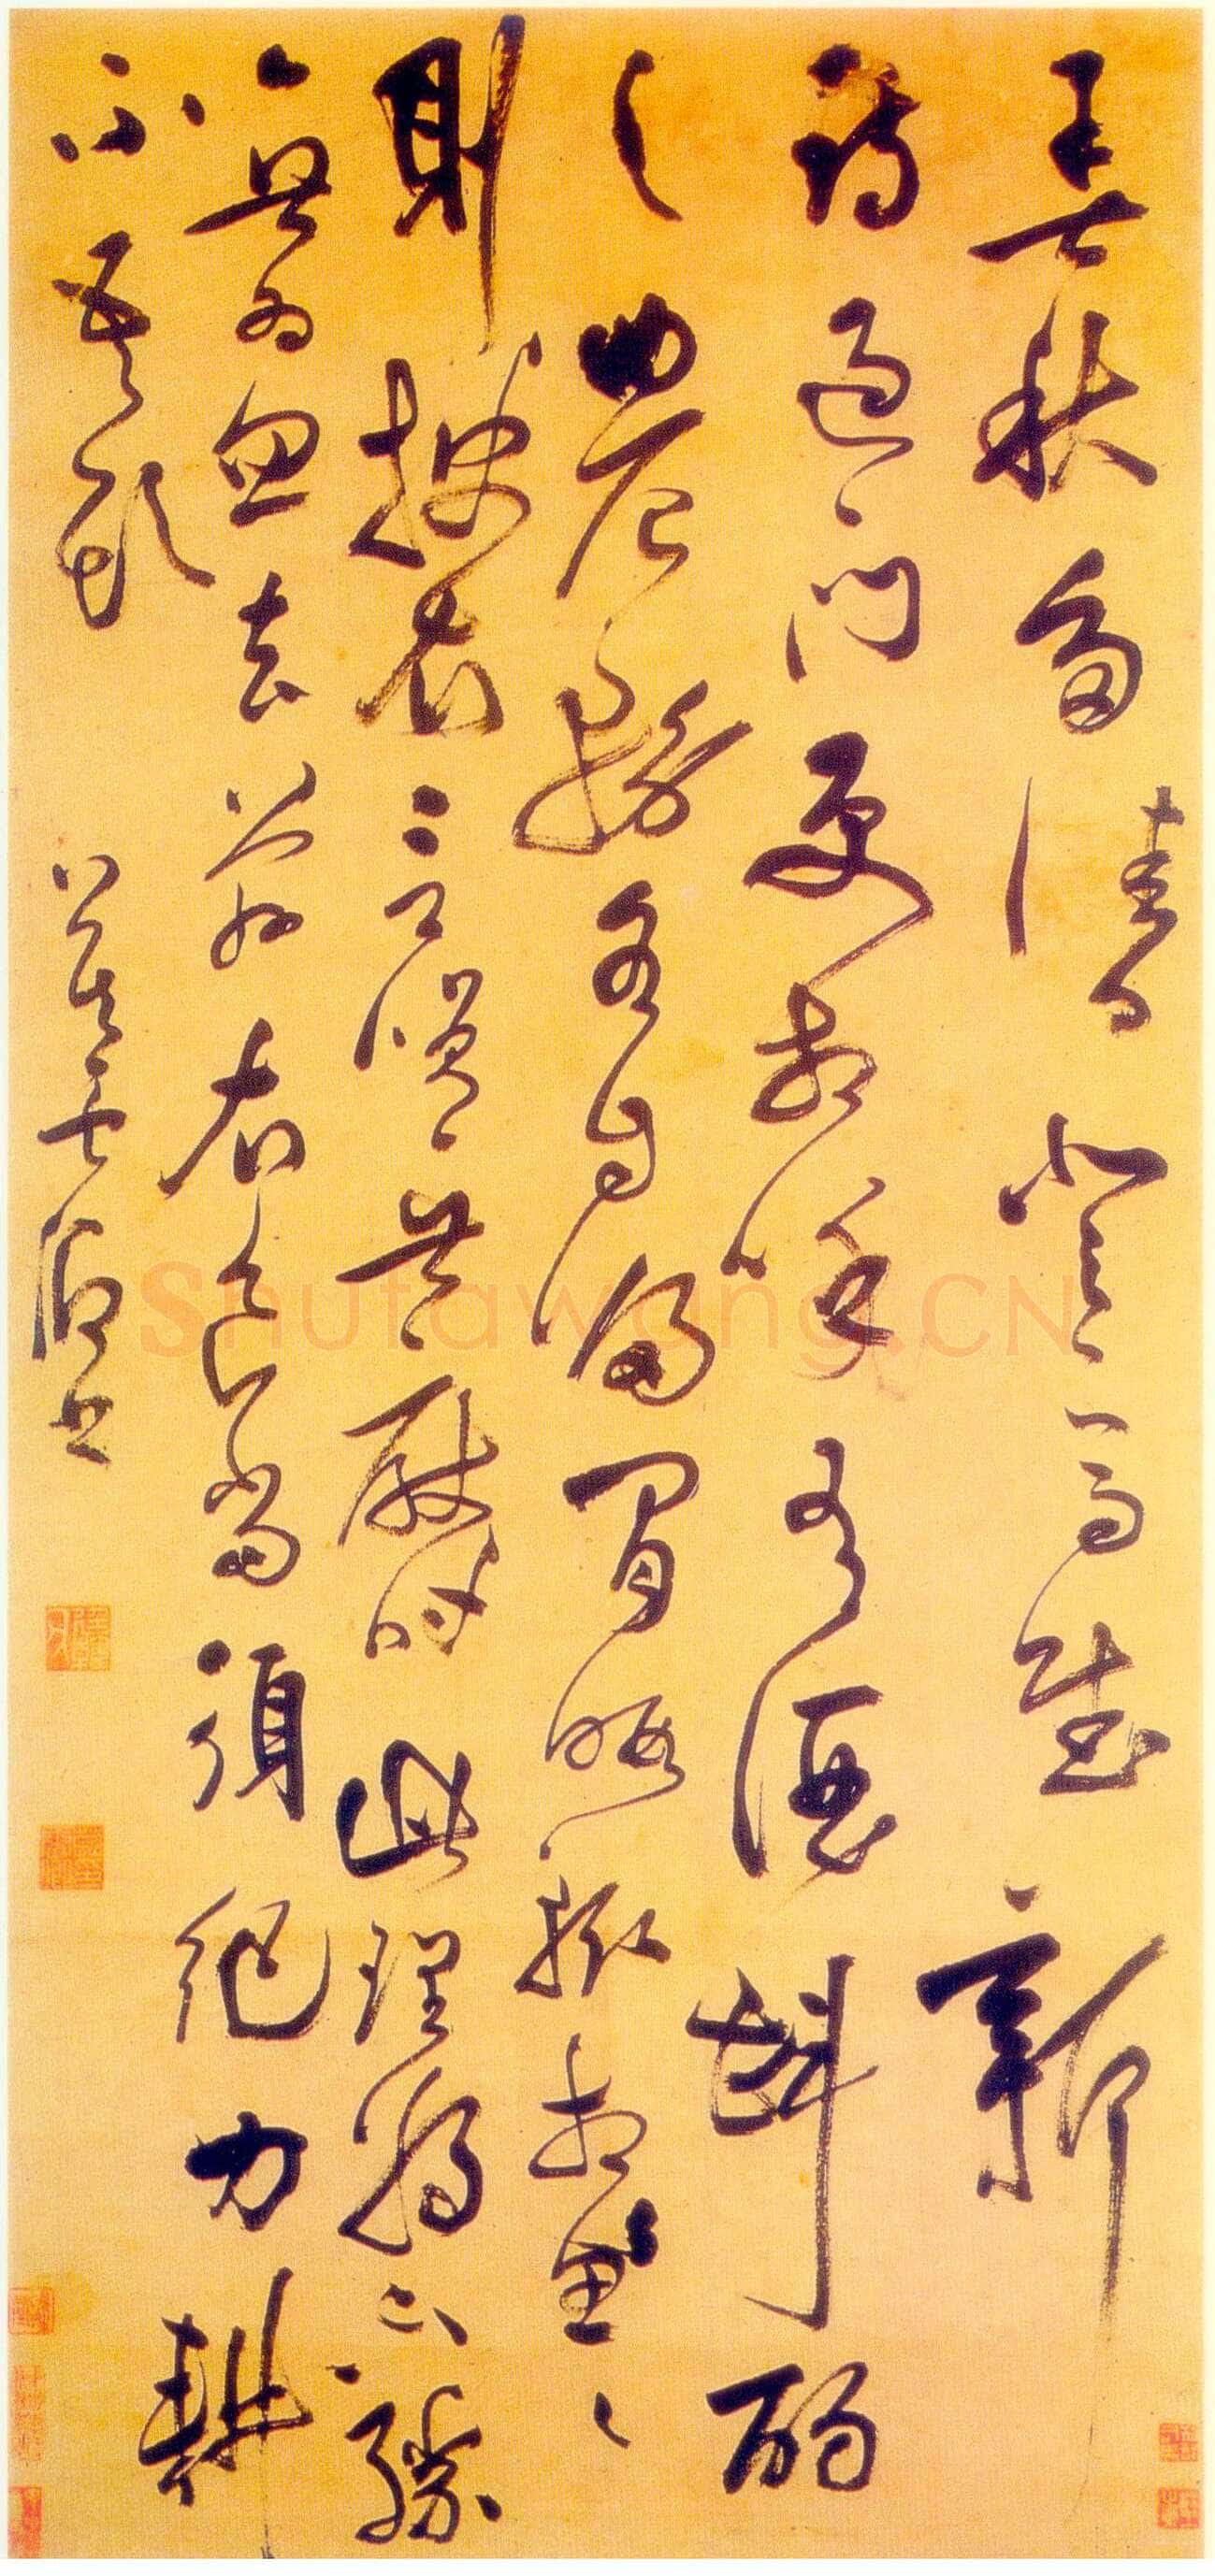 春秋多佳日登高賦新
詩過門更相呼有酒斟酌
之農務各自歸閒暇輒相思〻
則披衣言笑無厭時此理將不勝
無為忽去茲衣食當須紀力耕
不吾欺
Shufawang.CN